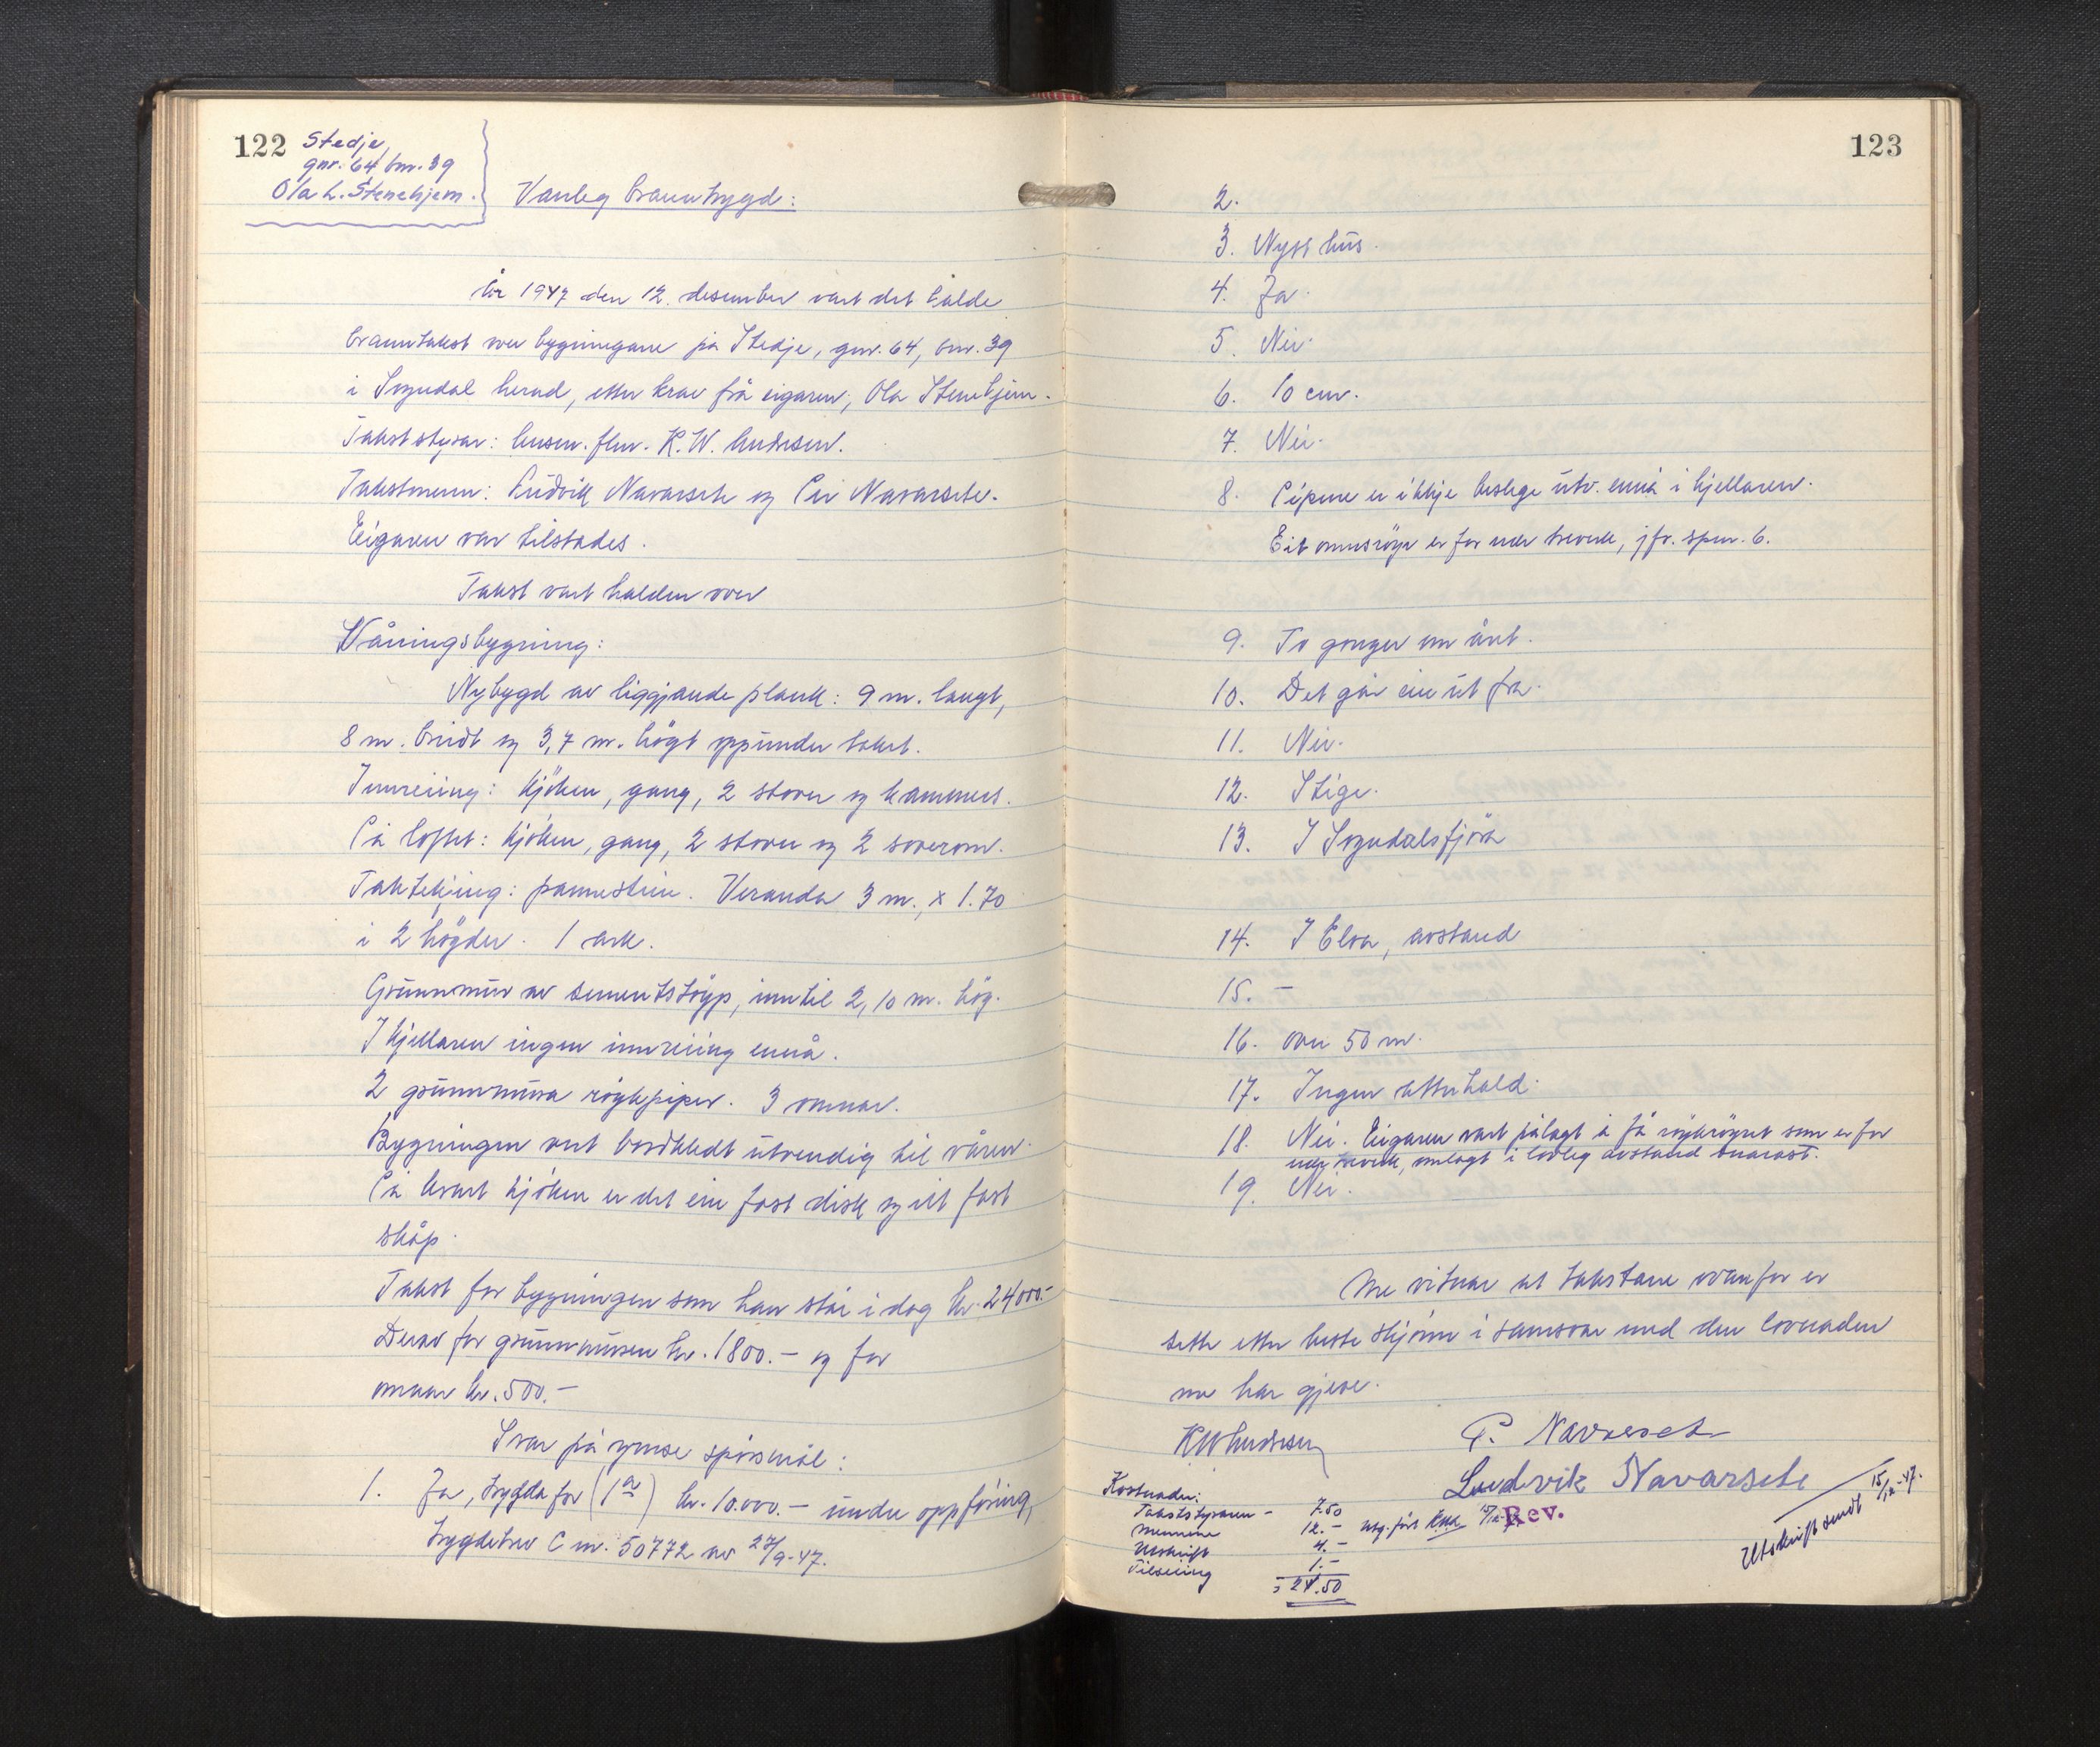 122
Stedje,
gnr. 64 bnr. 39
Ola L. Stenehjem.
Vanleg branntrygd:
År 1947 den 12. desember vart det halde
branntakst over bygningane på Stedje, gnr. 64, bnr. 39
i Sogndal herad, etter krav frå eigaren, Ola Stenehjem.
Takststyrar: lensm. flm. K. W. Andresen.
Takstmenn: Ludvik Navarsete og Per Navarsete.
Eigaren var tilstades.
Takst vart halden over
Våningsbygning:
Nybygd av liggjande plank: 9 m. langt,
8 m. breidt og 3,7 m. högt oppunder taket.
Innreiing: kjöken, gang, 2 stover og kammers.
På loftet: kjöken, gang, 2 stover og 2 soverom.
Taktekjing: pannestein. Veranda 3 m. x 1.70
i 2 högder. 1 ark.
Grunnmur av sementstöyp, inntil 2,10 m. hög.
I kjellaren ingen innreiing ennå.
2 grunnmura röykpiper. 3 omnar.
Bygningen vert bordkledt utvendig til våren.
På kvart kjöken er det ein fast disk og eit fast
skåp.
Takst for bygningen som han står i dag kr. 24000.-
Derav for grunnmuren kr. 1800.- og for
omnar kr. 500.-
Svar på ymse spörsmål:
1. Ja, trygda for (1 år) kr. 10.000.- under oppföring,
trygdebrev C nr. 50772 av 27/9-47.
123
2.
3. Nytt hus.
4. Ja.
5. Nei.
6. 10 cm.
7. Nei.
8. Pipene er ikkje beslege utv. ennå i kjellaren.
Eit omnsröyr er for nær treverk, jfr. spm. 6.
9. To gonger om året.
10. Det går ein ut frå.
11. Nei.
12. Stige.
13. I Sogndalsfjöra
14. I Elva, avstand
15. -
16. over 50 m.
17. Ingen atterhald.
18. Nei. Eigaren vart pålagt å få röykröyret som er for
nær treverk, omlagt i lovleg avstand snarast.
19. Nei.
Me vitnar at takstane ovanfor er
sette etter beste skjönn i samsvar med den lovnaden
me har gjeve.
KWAndresen
P. Navarsete
Ludvik Navarsete
Kostnader:
Takststyraren - 7.50
Mennene 12.-
Utskrift 4.-
Tilseiing 1.-
= 24.50
Rev.
Utskrift sendt 15/12-47.